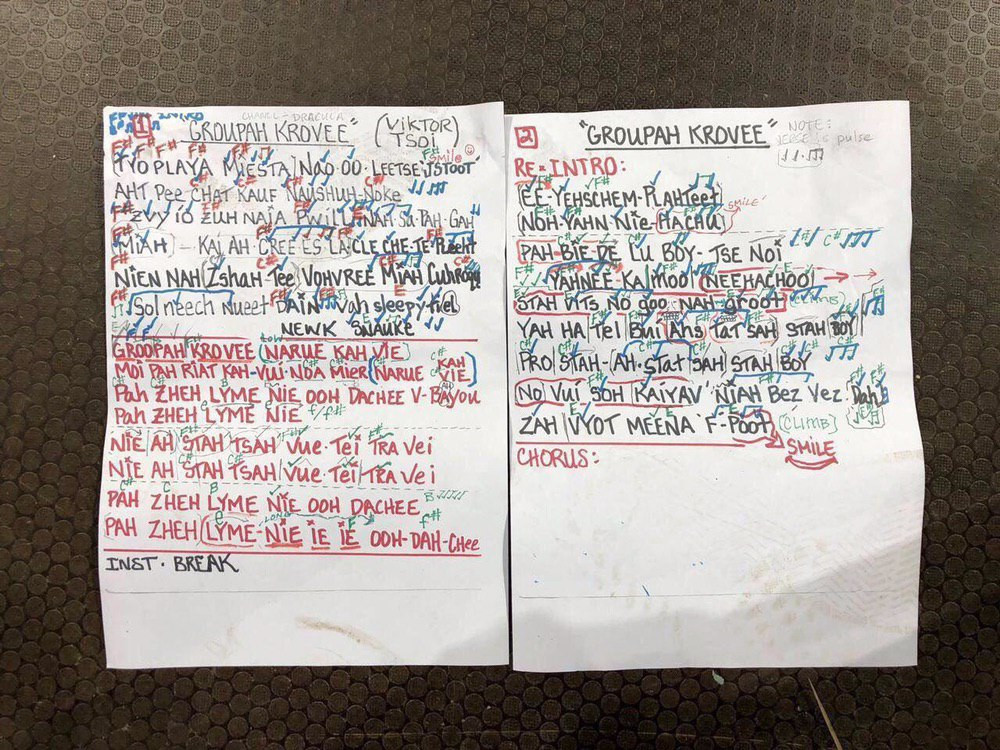 1
"GROUPAH KROVEE" (ViKTOR TSOI)
TYO PLAYA MiESTA NAO-OO-LEETSE
SMILE
AHT Pee CHAT KAUF NAUSHUH-Noke
ZVY IO ZUH NAJA PWILL NAH Su-PAH-GAH
MIAH - KAI AH-CREE ES LA CLE CHE-TE
NIEN NAH IshAH-Tee VOHVREE MIAH
Sol neech Nueet DAIN vah sleepy
GROOPAH KROVEE (NARUE KAH VIE)
MOI PAH RIAT KAH-VUI NOA MIER (NARUE KAH VIE)
PAH ZHEH LYME NIE OOH DACHEE V-BAYOU
PAH ZHEH LYME NIE f/f#
NIE AH STAH TSAH Vue-Tei TRA Vei
NIE AH STAH TSAH Vue-Tei TRA Vei
PAH ZHEH LYME NIE OOH DACHEE
PAH ZHEH LYME-NIE IE IE OOH-DAH-CHee
INST. BREAK
2
"GROUPAH KROVEE"
NOTE:
VERSE is pulse
RE-INTRO:
EE-YEHSCHEM-PLAHTeet
(NOH-YAHN NiE-HACHU) SMILE
PAH-BIE-DE LU BOY-TSE NOI
YAHNEE KAI KOOI NEEHACHOO
STAH VITS NO goo NAH-groot (CLIMB)
YAH HA Tei Bui Ahs TAT SAH STAH BOY
PRO STAH-AH-STAT SAH STAH BOY
NO VUI SOH KAIYAV' NIAH Bez Vez-Dah
ZAH VYOT MEENA F-POOT (CLIMB)
SMILE
CHORUS: